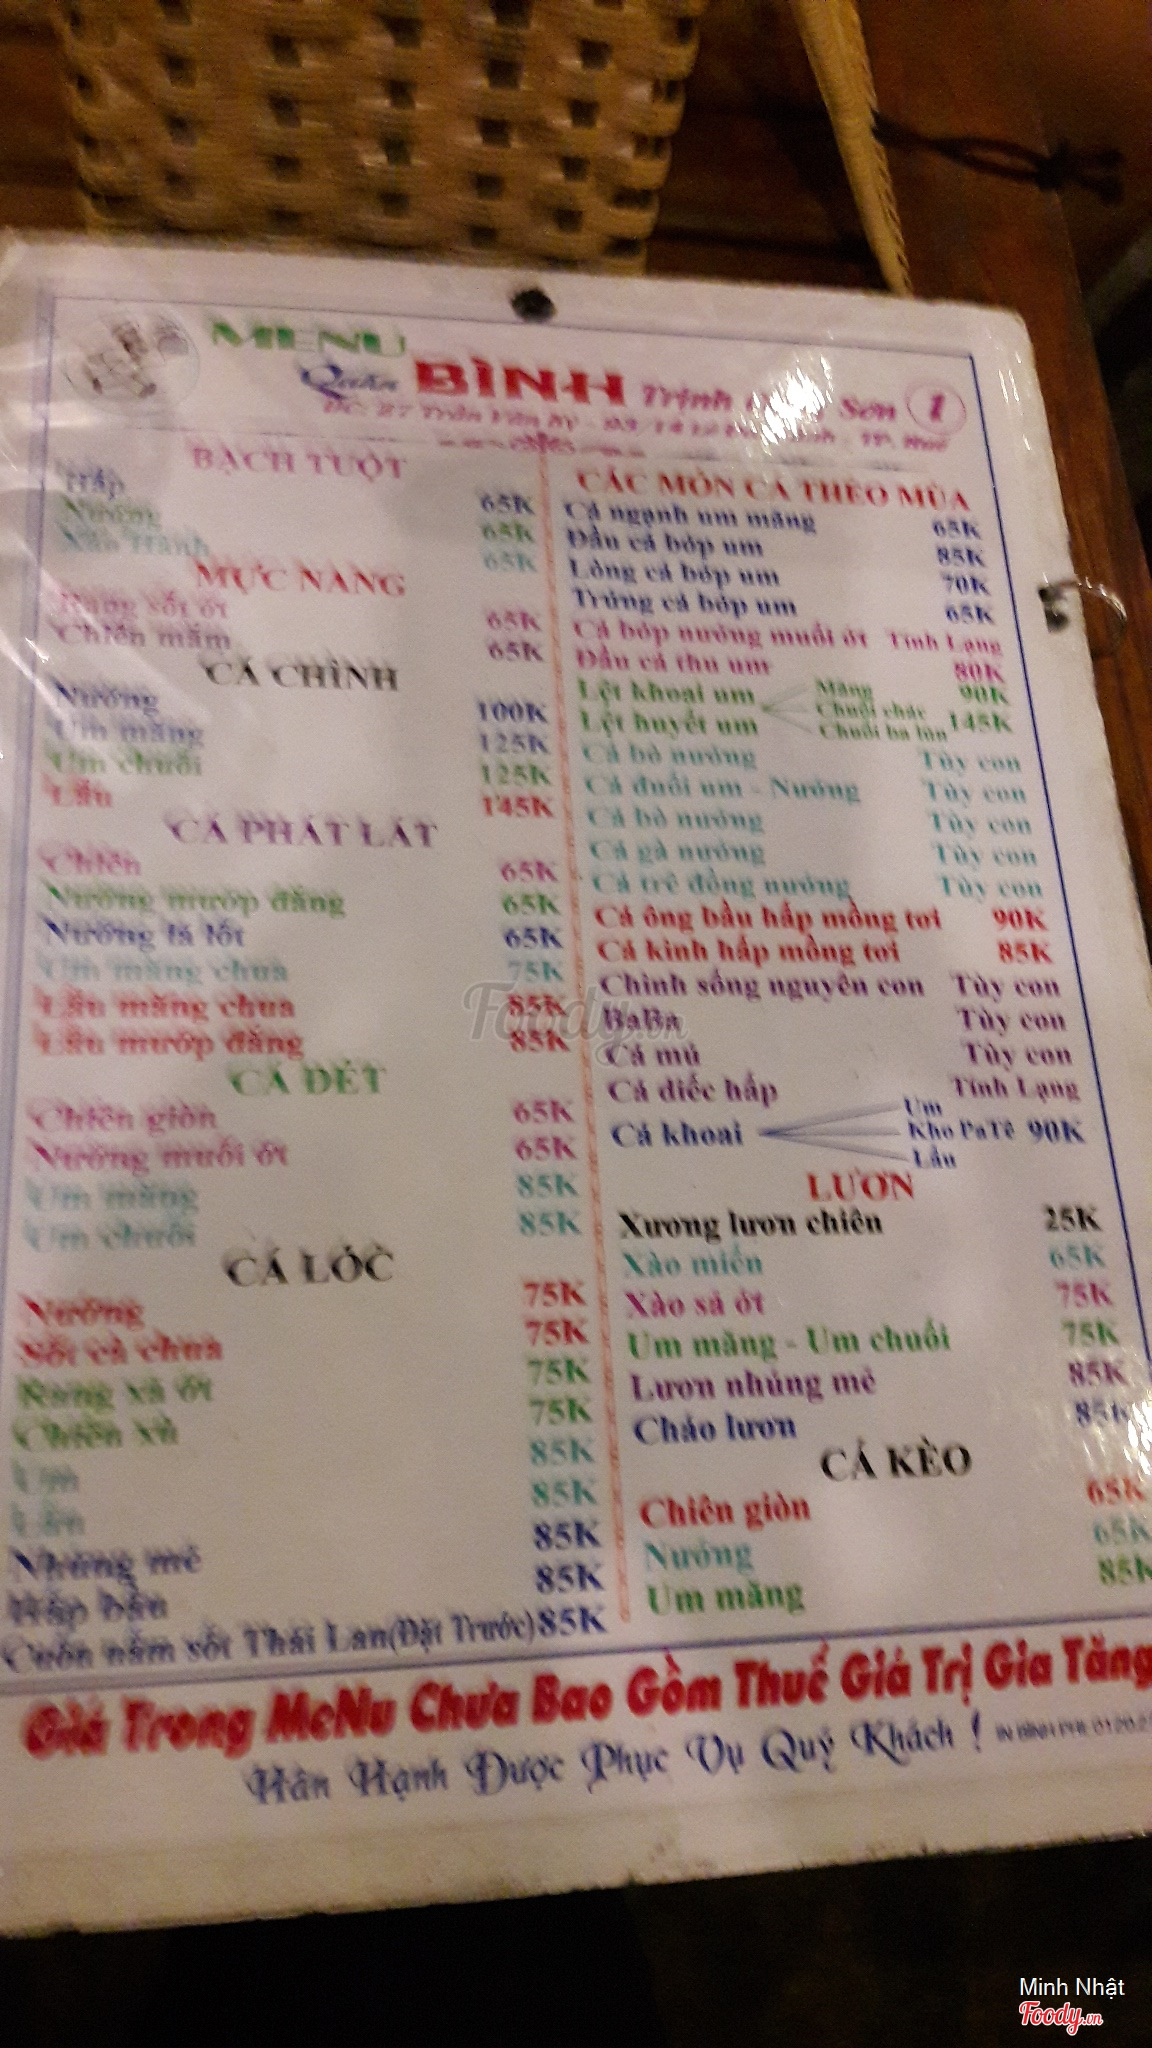 MENU
Quán BÌNH Trịnh Sơn 1
ĐC: 87 Trần Văn Kỷ - TP. Huế
BẠCH TUỘT
Hấp 65K
Nướng 65K
Xào Hành 65K
MỰC NANG
Rang sốt ớt 65K
Chiên mắm 65K
CÁ CHÌNH
Nướng 100K
Um măng 125K
Um chuối 125K
Lẩu 145K
CÁ PHÁT LÁT
Chiên 65K
Nướng mướp đắng 65K
Nướng lá lốt 65K
Um măng chua 75K
Lẩu măng chua 85K
Lẩu mướp đắng 85K
CÁ DÉT
Chiên giòn 65K
Nướng muối ớt 65K
Um măng 85K
Um chuối 85K
CÁ LÓC
Nướng 75K
Sốt cà chua 75K
Rang xả ớt 75K
Chiên xù 75K
Um 85K
Lẩu 85K
Nhúng mẻ 85K
Hấp bầu 85K
Cuốn nấm sốt Thái Lan(Đặt Trước) 85K
CÁC MÓN CÁ THEO MÙA
Cá ngạnh um măng 65K
Đầu cá bóp um 85K
Lòng cá bóp um 70K
Trứng cá bóp um 65K
Cá bóp nướng muối ớt Tính Lạng
Đầu cá thu um 80K
Lệt khoai um 90K
Lệt huyết um 145K
Măng
Chuối chác
Chuối ba lùn
Cá bò nướng Tùy con
Cá đuối um - Nướng Tùy con
Cá bò nướng Tùy con
Cá gà nướng Tùy con
Cá trê đồng nướng Tùy con
Cá ông bầu hấp mồng tơi 90K
Cá kình hấp mồng tơi 85K
Chình sống nguyên con Tùy con
BaBa Tùy con
Cá mú Tùy con
Cá diếc hấp Tính Lạng
Cá khoai Um Kho PaTê Lẩu 90K
LƯƠN
Xương lươn chiên 25K
Xào miến 65K
Xào sả ớt 75K
Um măng - Um chuối 75K
Lươn nhúng mẻ 85K
Cháo lươn 85K
CÁ KÈO
Chiên giòn 65K
Nướng 65K
Um măng 85K
Giá Trong MeNu Chưa Bao Gồm Thuế Giá Trị Gia Tăng
Hân Hạnh Được Phục Vụ Quý Khách !
Foody.vn
Minh Nhật
Foody.vn